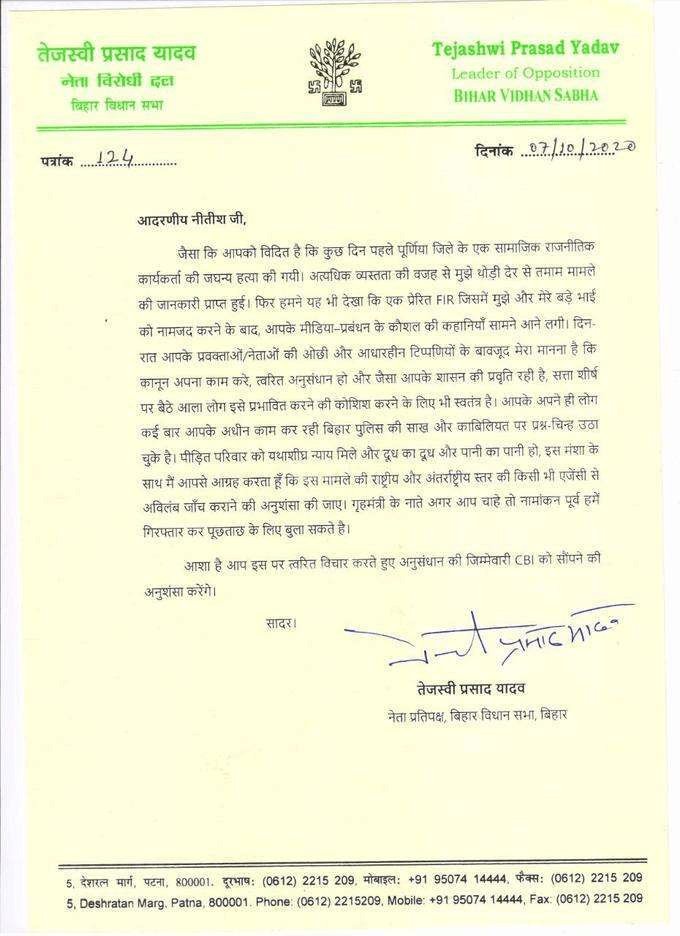 तेजस्वी प्रसाद यादव
नेता विरोधी दल
बिहार विधान सभा
Tejashwi Prasad Yadav
Leader of Opposition
BIHAR VIDHAN SABHA
पत्रांक ....124.............
दिनांक ...07/10/2020
आदरणीय नीतीश जी,
जैसा कि आपको विदित है कि कुछ दिन पहले पूर्णिया जिले के एक सामाजिक राजनीतिक
कार्यकर्ता की जघन्य हत्या की गयी। अत्यधिक व्यस्तता की वजह से मुझे थोड़ी देर से तमाम मामले
की जानकारी प्राप्त हुई। फिर हमने यह भी देखा कि एक प्रेरित FIR जिसमें मुझे और मेरे बड़े भाई
को नामजद करने के बाद, आपके मीडिया–प्रबंधन के कौशल की कहानियाँ सामने आने लगी। दिन-
रात आपके प्रवक्ताओं/नेताओं की ओछी और आधारहीन टिप्पणियों के बावजूद मेरा मानना है कि
कानून अपना काम करे, त्वरित अनुसंधान हो और जैसा आपके शासन की प्रवृति रही है, सत्ता शीर्ष
पर बैठे आला लोग इसे प्रभावित करने की कोशिश करने के लिए भी स्वतंत्र है। आपके अपने ही लोग
कई बार आपके अधीन काम कर रही बिहार पुलिस की साख और काबिलियत पर प्रश्न-चिन्ह उठा
चुके है। पीड़ित परिवार को यथाशीघ्र न्याय मिले और दूध का दूध और पानी का पानी हो, इस मंशा के
साथ मैं आपसे आग्रह करता हूँ कि इस मामले की राष्ट्रीय और अंतर्राष्ट्रीय स्तर की किसी भी एजेंसी से
अविलंब जाँच कराने की अनुशंसा की जाए। गृहमंत्री के नाते अगर आप चाहे तो नामांकन पूर्व हमें
गिरफ्तार कर पूछताछ के लिए बुला सकते है।
आशा है आप इस पर त्वरित विचार करते हुए अनुसंधान की जिम्मेवारी CBI को सौंपने की
अनुशंसा करेंगे।
सादर।
प्रसाद यादव
तेजस्वी प्रसाद यादव
नेता प्रतिपक्ष, बिहार विधान सभा, बिहार
5, देशरत्न मार्ग, पटना, 800001. दूरभाष: (0612) 2215 209, मोबाइल: +91 95074 14444, फैक्स: (0612) 2215 209
5, Deshratan Marg, Patna, 800001. Phone: (0612) 2215209, Mobile: +91 95074 14444, Fax: (0612) 2215 209